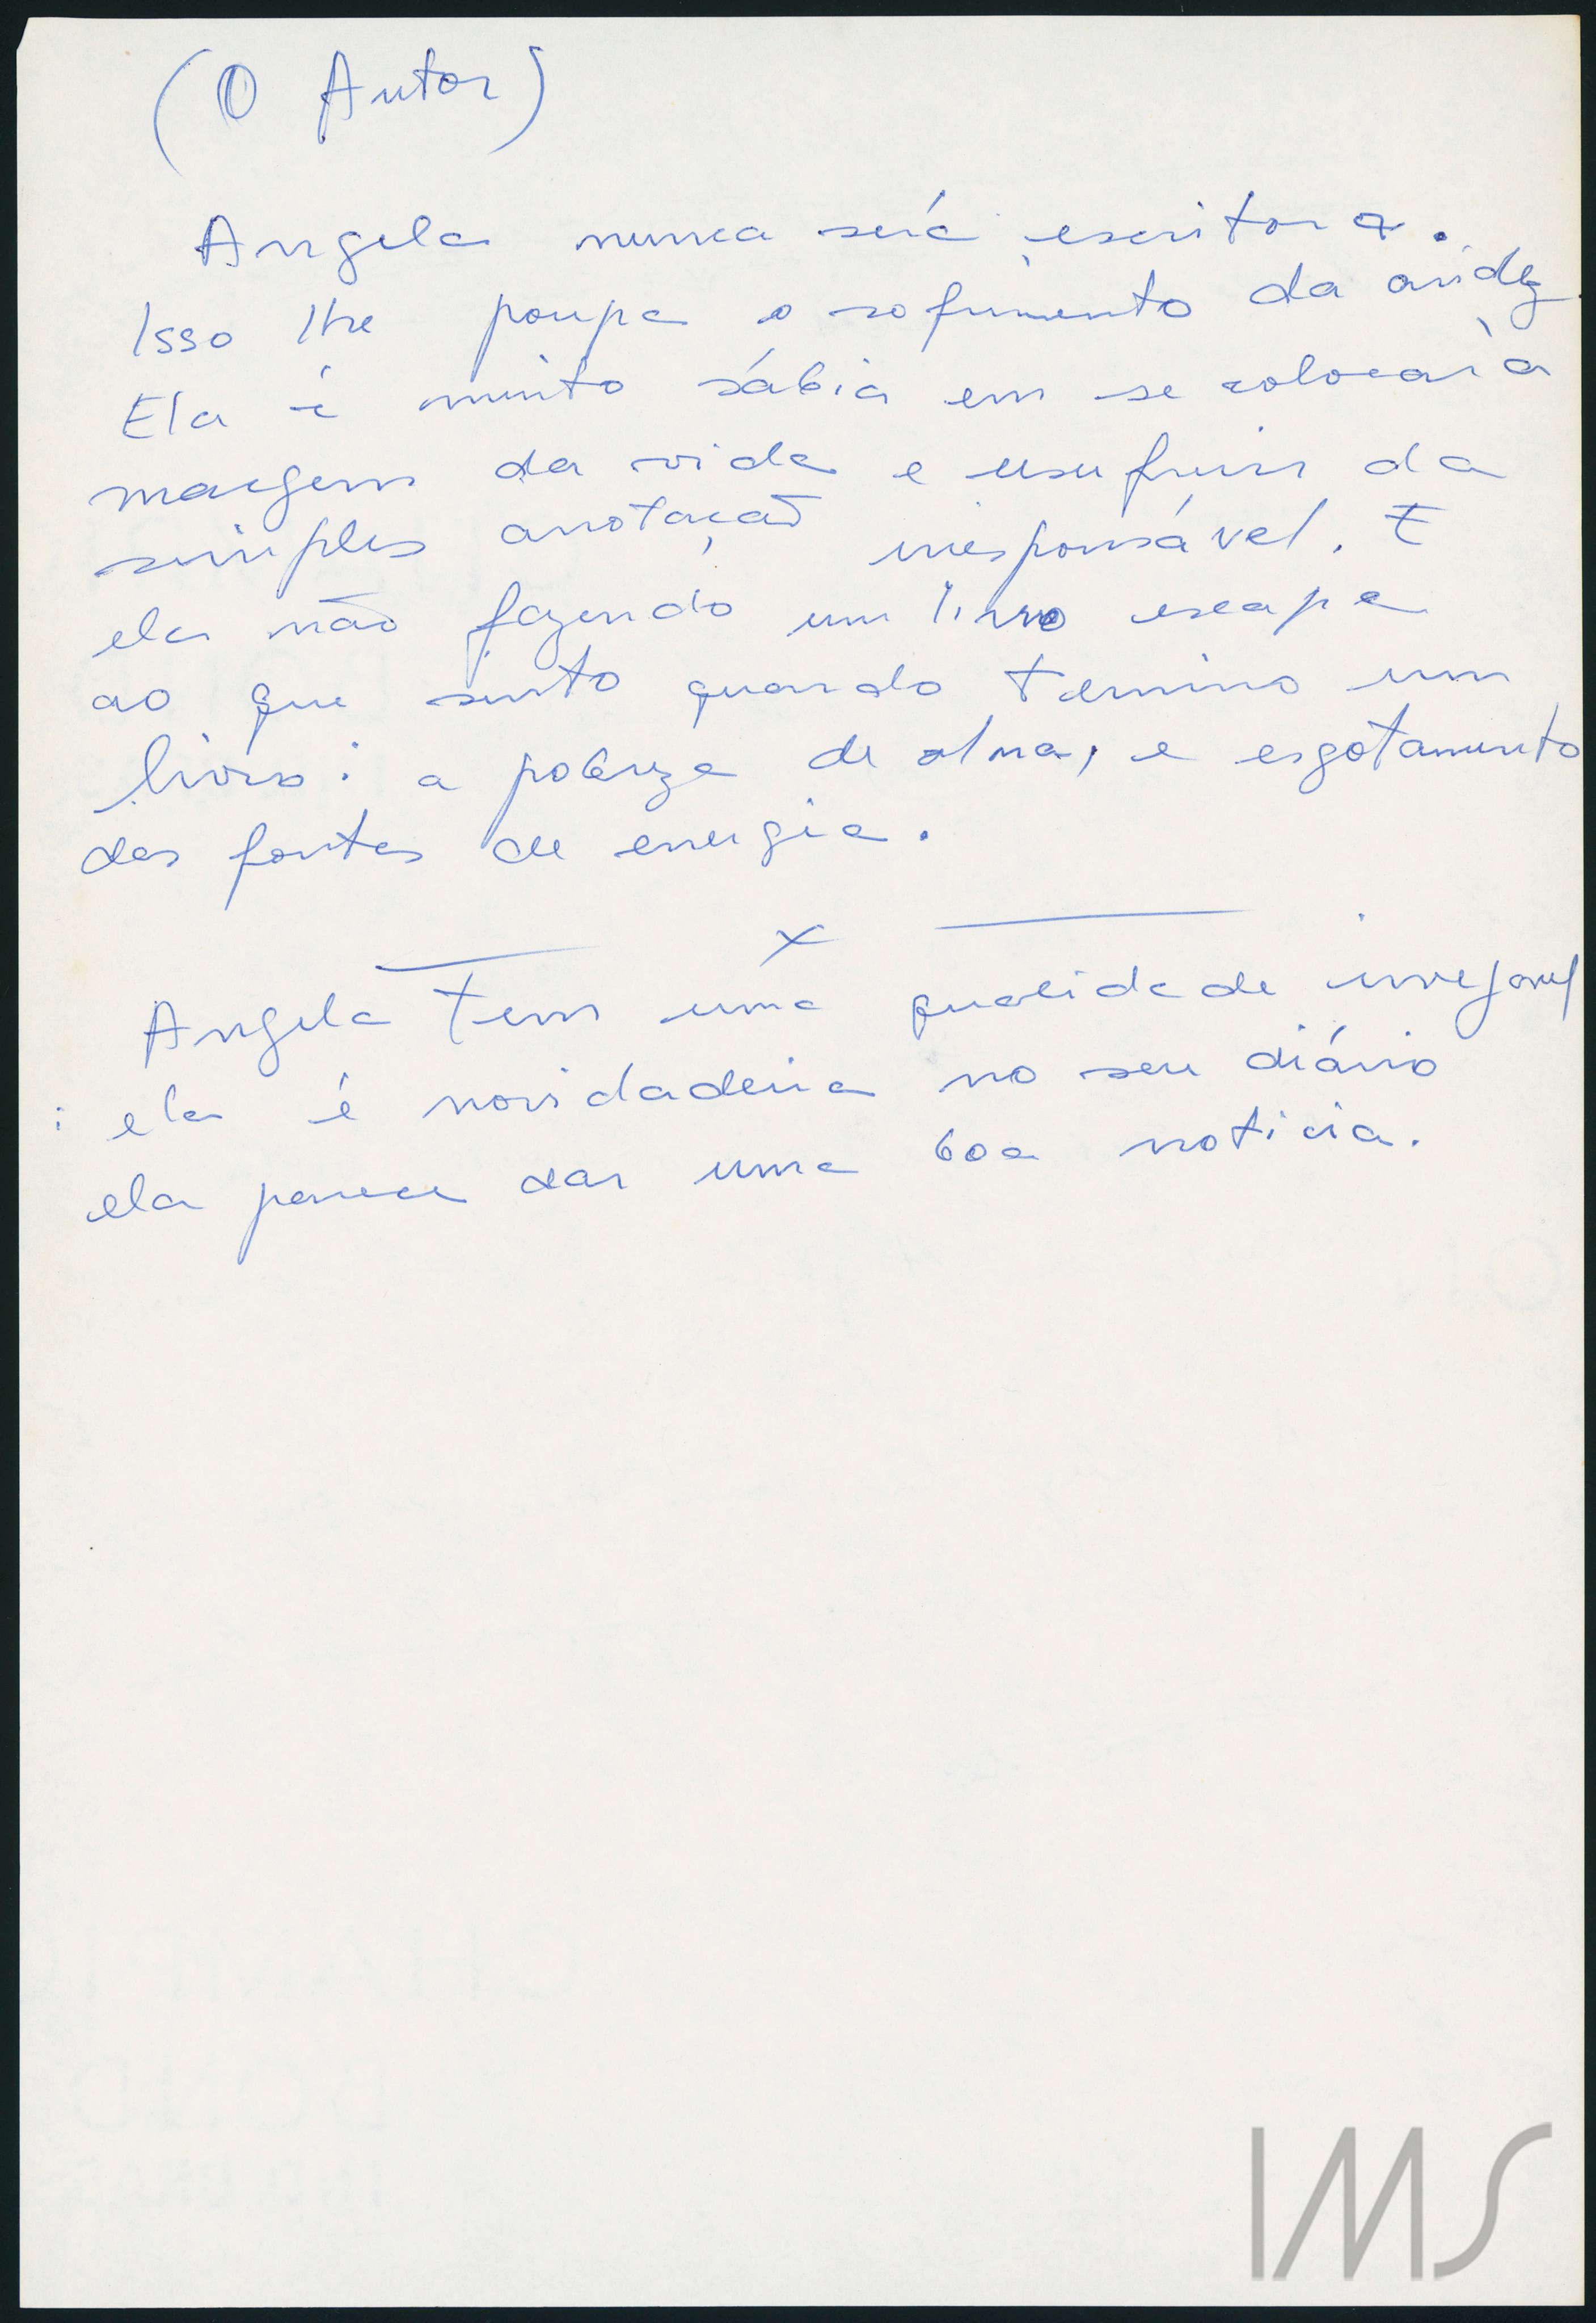 (O Autor)
Angela nunca será escritora.
Isso lhe poupa o sofrimento da aridez
Ela é muito sábia em se colocar à
margem da vida e usufruir da
simples anotação irresponsável. E
ela não fazendo um livro escapa
ao que sinto quando termino um
livro: a pobreza de alma, e esgotamento
das fontes de energia.
x
Angela tem uma qualidade invejavel
: ela é novidadeira no seu diário
ela parece dar uma boa noticia.
IMS